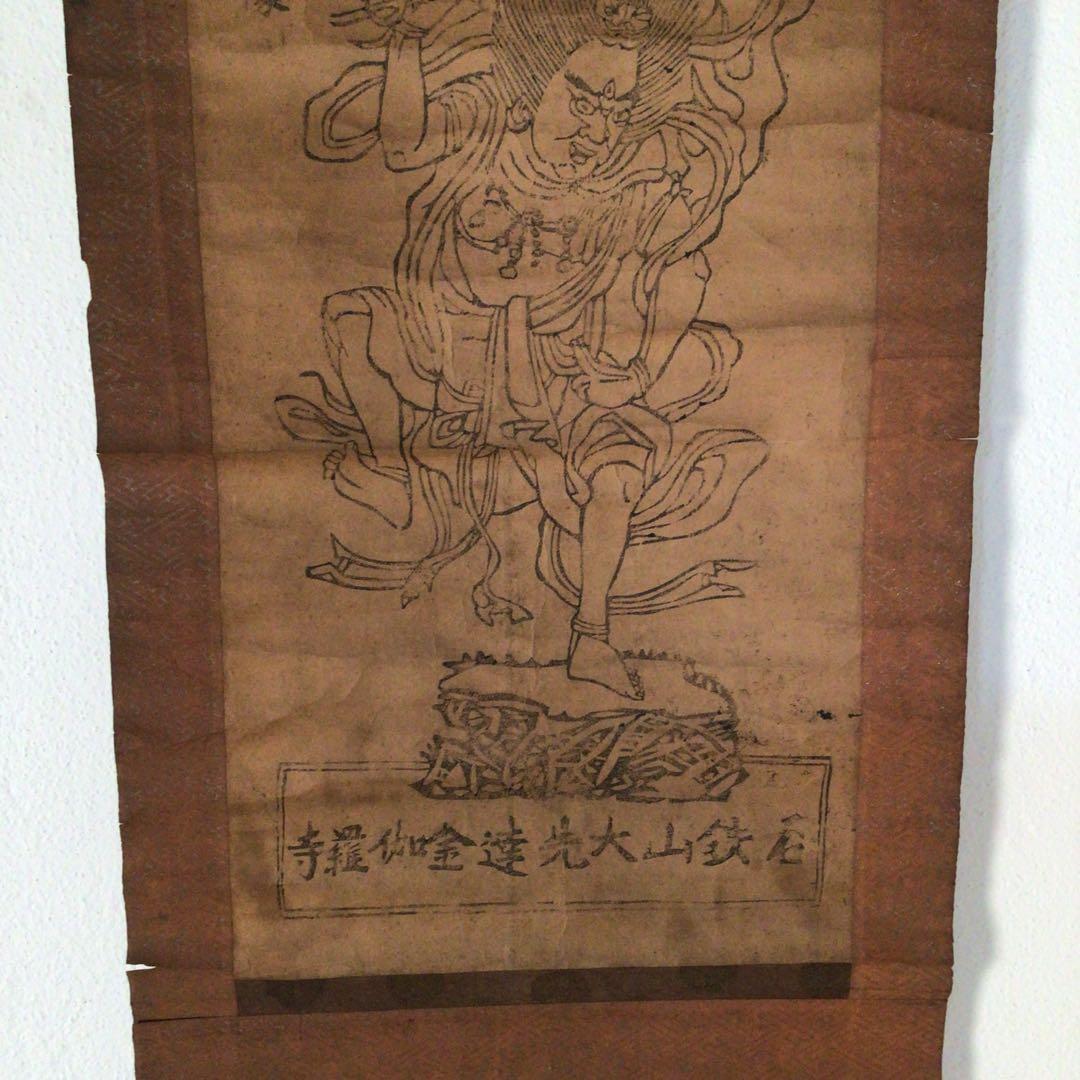 石鉄山大先達金伽羅寺